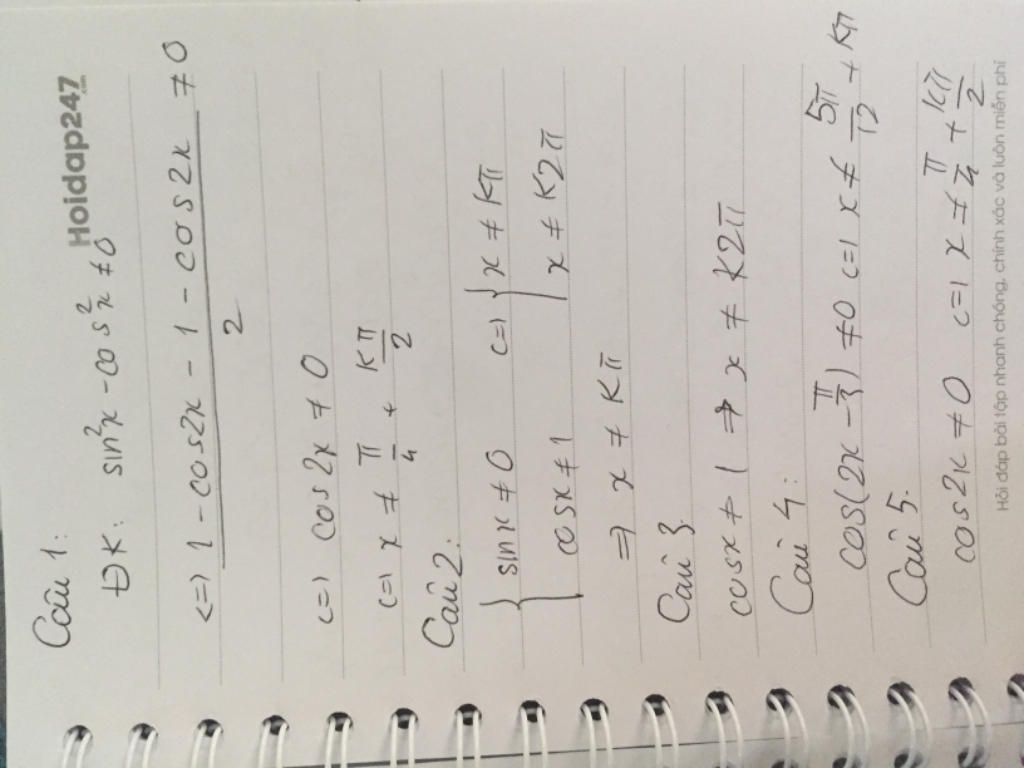 Hoidap247
Câu 1:
ĐK: sin²x - cos²x ≠ 0
<=> (1 - cos2x - 1 - cos2x)/2 ≠ 0
<=> cos2x ≠ 0
<=> x ≠ π/4 + kπ/2
Câu 2:
{ sinx ≠ 0 <=> { x ≠ kπ
cosx ≠ 1 x ≠ k2π
=> x ≠ kπ
Câu 3.
cosx ≠ 1 => x ≠ k2π
Câu 4:
cos(2x - π/3) ≠ 0 <=> x ≠ 5π/12 + kπ
Câu 5.
cos2x ≠ 0 <=> x ≠ π/4 + kπ/2
Hỏi đáp bài tập nhanh chóng, chính xác và luôn miễn phí